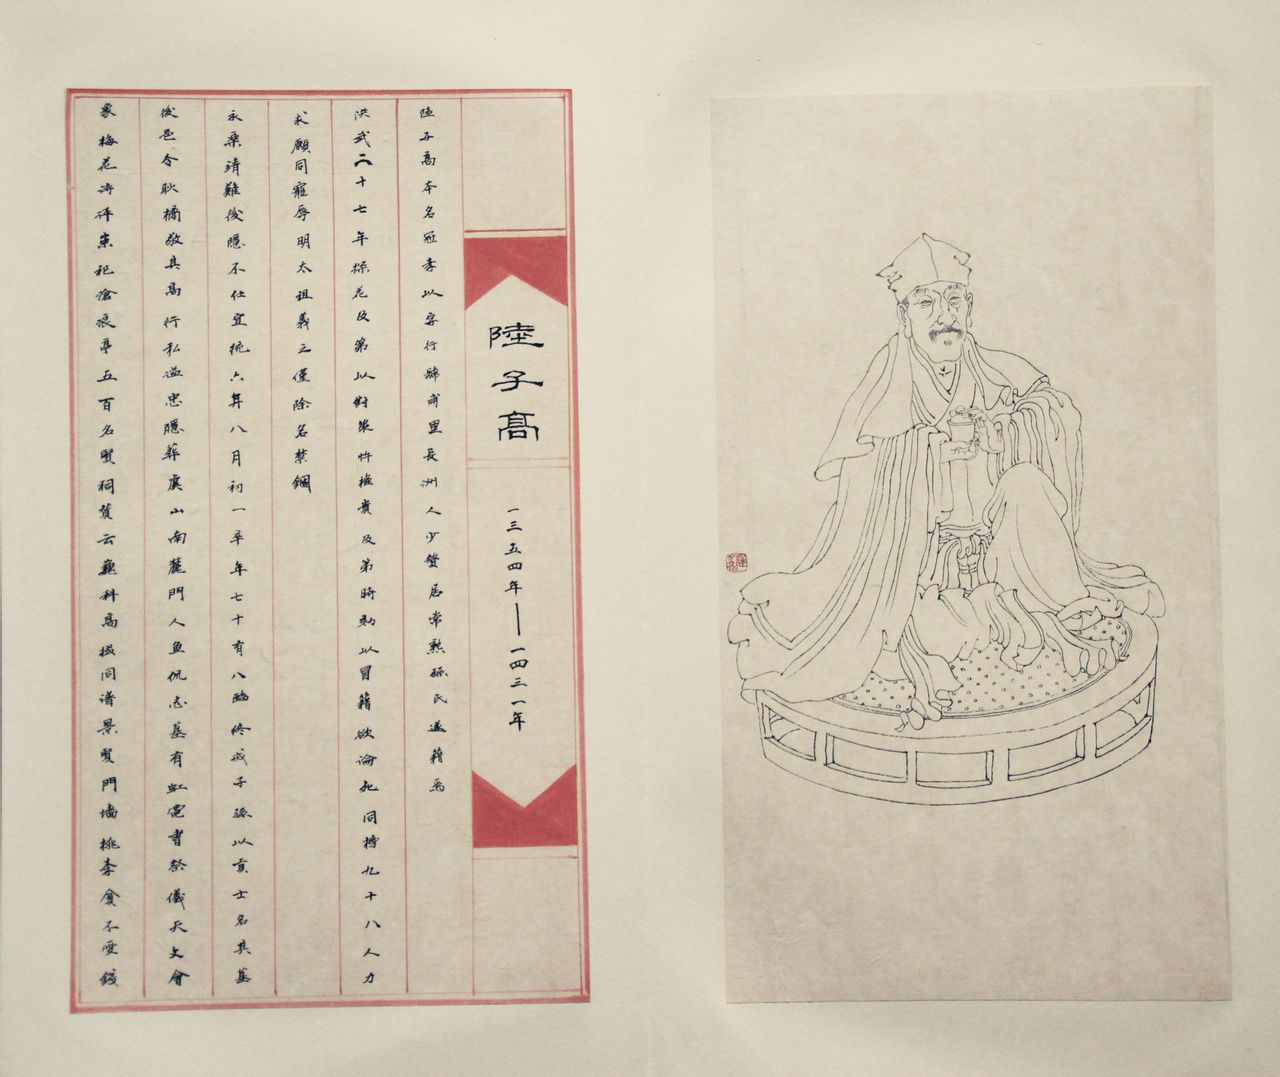 陸子高
一三五四年——一四三一年
陸子高本名冠孝以字行號甫里長洲人少贅居常熟孫氏遂籍焉
洪武二十七年探花及第以對策忤權貴及第時劾以冒籍欲論死同榜九十八人力
求願同寵辱明太祖義之僅除名禁錮
永樂靖難後隱不仕宣統六年八月初一卒年七十有八臨終戒子孫以貢士名其墓
後邑令耿橘敬其高行私謚忠隱葬虞山南麓門人魚侃志墓有虹霓書祭儀天文會
象梅花詩評崇祀滄浪亭五百名賢祠贊云巍科高掇同譜景賢門墻桃李貧不受錢
陸子高